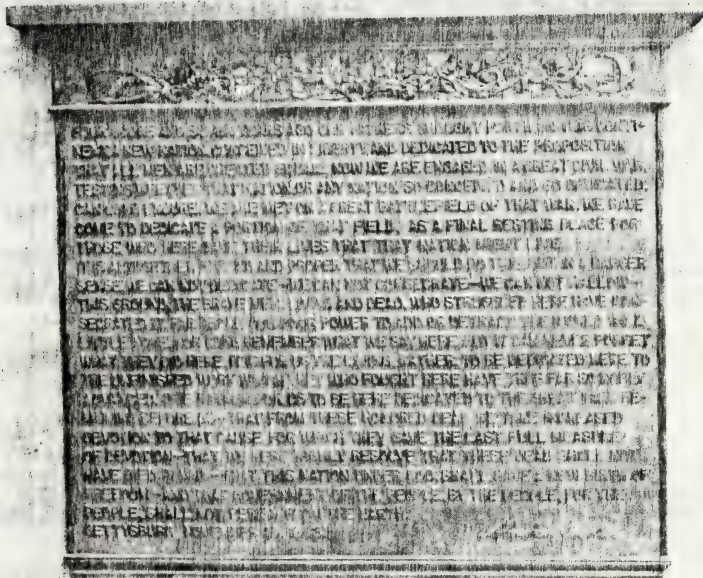 FOUR SCORE AND SEVEN YEARS AGO OUR FATHERS BROUGHT FORTH ON THIS CONTI-
NENT A NEW NATION, CONCEIVED IN LIBERTY, AND DEDICATED TO THE PROPOSITION
THAT ALL MEN ARE CREATED EQUAL. NOW WE ARE ENGAGED IN A GREAT CIVIL WAR,
TESTING WHETHER THAT NATION, OR ANY NATION SO CONCEIVED AND SO DEDICATED,
CAN LONG ENDURE. WE ARE MET ON A GREAT BATTLEFIELD OF THAT WAR. WE HAVE
COME TO DEDICATE A PORTION OF THAT FIELD, AS A FINAL RESTING PLACE FOR
THOSE WHO HERE GAVE THEIR LIVES THAT THAT NATION MIGHT LIVE.
IT IS ALTOGETHER FITTING AND PROPER THAT WE SHOULD DO THIS. BUT IN A LARGER
SENSE WE CAN NOT DEDICATE—WE CAN NOT CONSECRATE—WE CAN NOT HALLOW—
THIS GROUND. THE BRAVE MEN, LIVING AND DEAD, WHO STRUGGLED HERE HAVE CON-
SECRATED IT FAR ABOVE OUR POOR POWER TO ADD OR DETRACT. THE WORLD WILL
LITTLE NOTE, NOR LONG REMEMBER WHAT WE SAY HERE, BUT IT CAN NEVER FORGET
WHAT THEY DID HERE. IT IS FOR US THE LIVING, RATHER, TO BE DEDICATED HERE TO
THE UNFINISHED WORK WHICH THEY WHO FOUGHT HERE HAVE THUS FAR SO NOBLY
ADVANCED. IT IS RATHER FOR US TO BE HERE DEDICATED TO THE GREAT TASK RE-
MAINING BEFORE US—THAT FROM THESE HONORED DEAD WE TAKE INCREASED
DEVOTION TO THAT CAUSE FOR WHICH THEY GAVE THE LAST FULL MEASURE
OF DEVOTION—THAT WE HERE HIGHLY RESOLVE THAT THESE DEAD SHALL NOT
HAVE DIED IN VAIN—THAT THIS NATION UNDER GOD, SHALL HAVE A NEW BIRTH OF
FREEDOM—AND THAT GOVERNMENT OF THE PEOPLE, BY THE PEOPLE, FOR THE
PEOPLE, SHALL NOT PERISH FROM THE EARTH.
GETTYSBURG